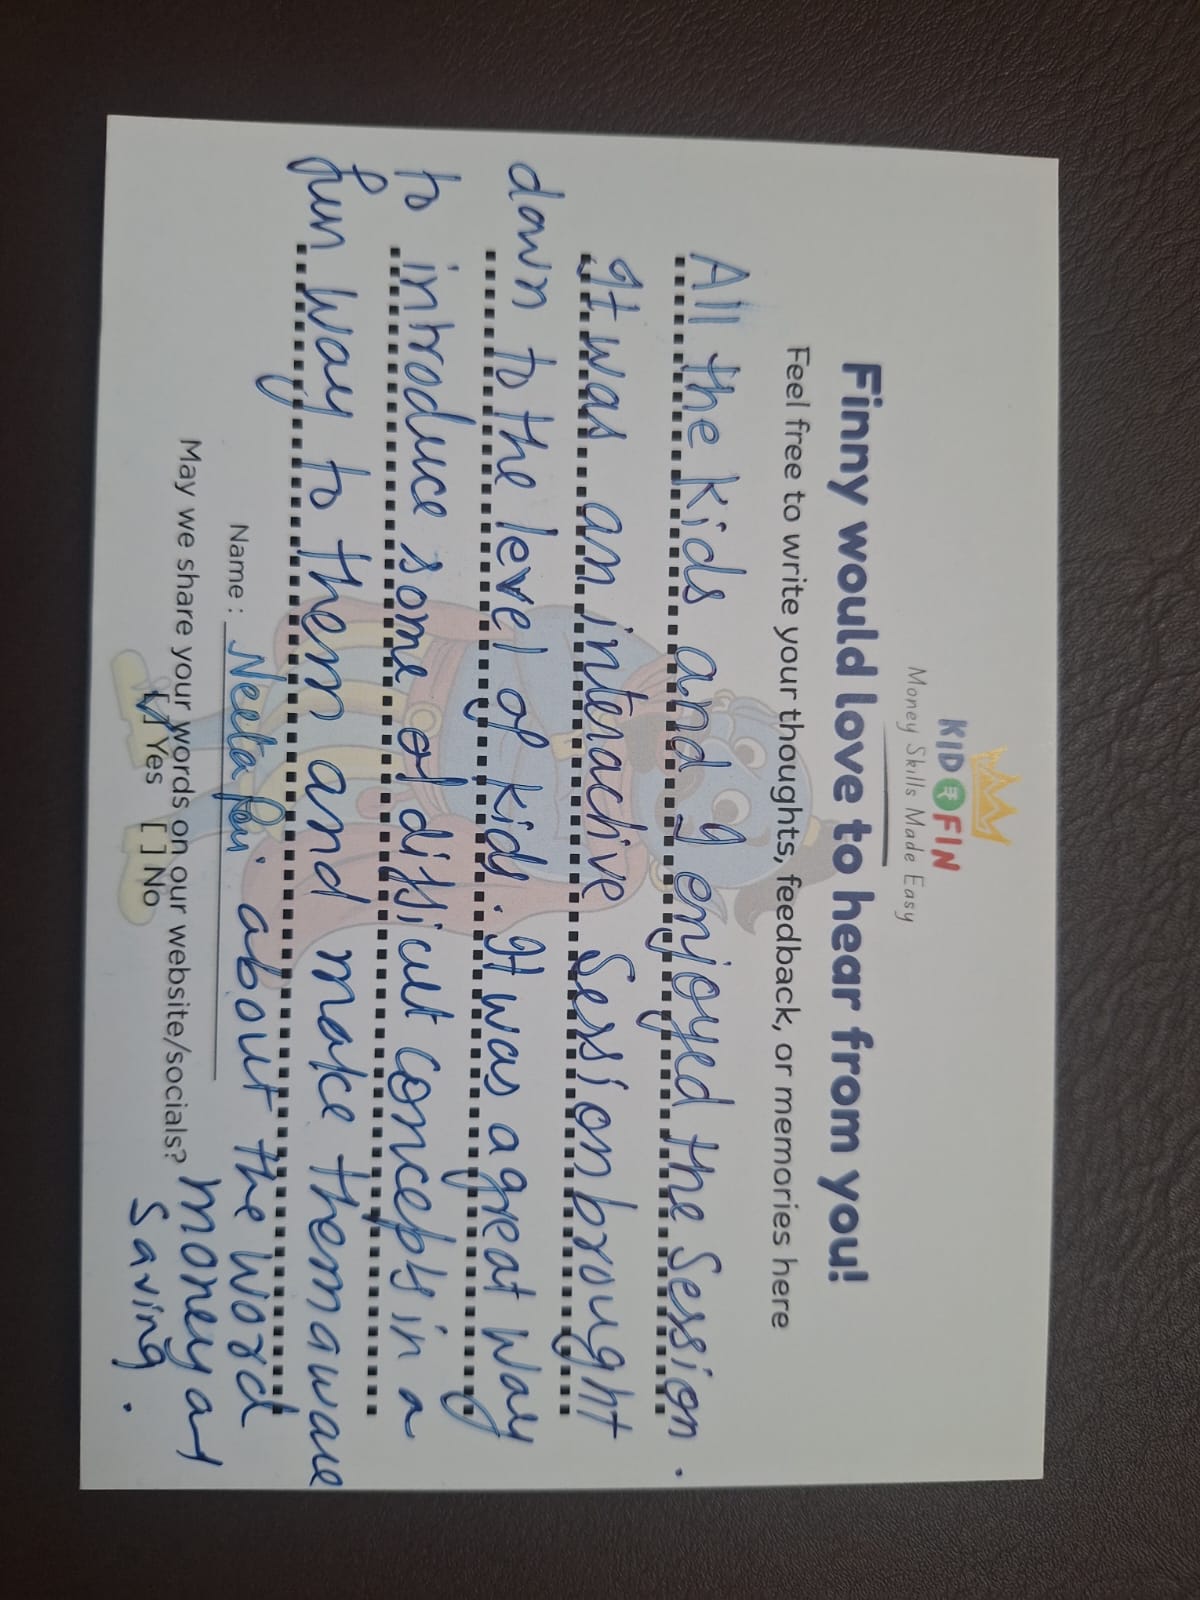 KID₹FIN
Money Skills Made Easy
Finny would love to hear from you!
Feel free to write your thoughts, feedback, or memories here
All the kids and I enjoyed the Session.
It was an interactive Session brought
down to the level of kids. It was a great way
to introduce some of difficult concepts in a
fun way to them and make them aware
about the word
money and
Saving.
Name: Neeta
May we share your words on our website/socials?
[✓] Yes [ ] No